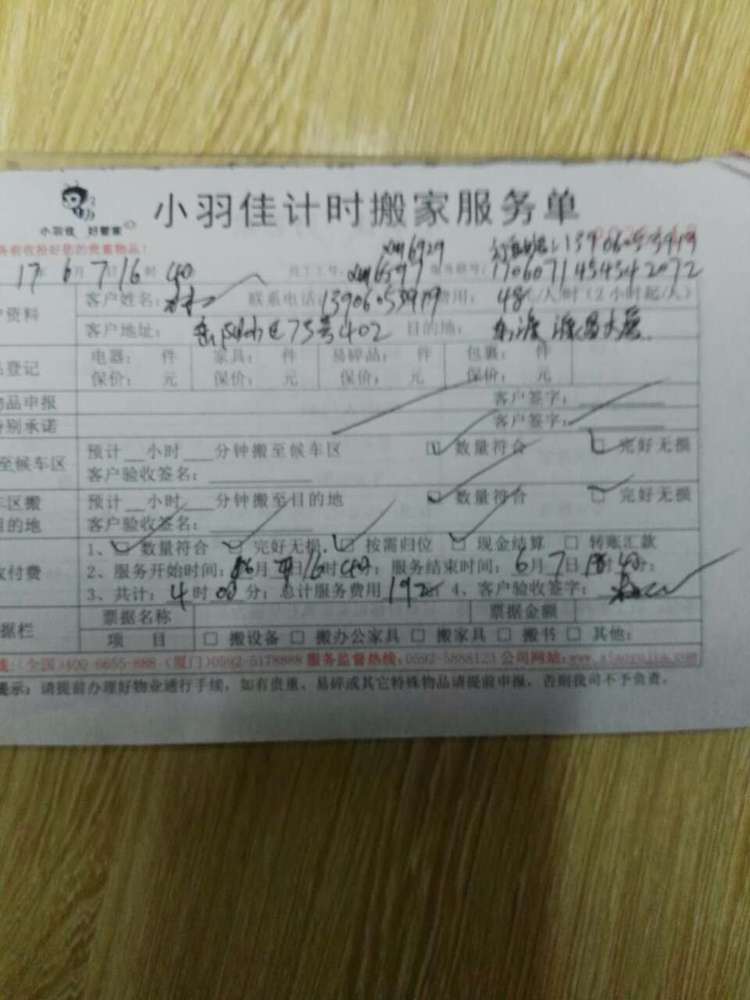 小羽佳计时搬家服务单
小羽佳 好管家
务前收拾好您的贵重物品!
xm6929 13906053979
17 6月7 16时40 员工工号: xm6397 1706071454542072
客户姓名: 联系电话:13906053979 费用: 48元/人时(2小时起/人)
户资料
客户地址: 75号402 目的地: 东渡 大厦
电器: 件 家具: 件 易碎品: 件 包裹: 件
品登记
保价: 元 保价: 元 保价: 元 保价: 元
物品申报 客户签字:
特别承诺 客户签字:
预计__小时__分钟搬至候车区 数量符合 完好无损
至候车区
客户验收签名:
车区搬 预计__小时__分钟搬至目的地 数量符合 完好无损
目的地 客户验收签名:
1、 数量符合 完好无损 按需归位 现金结算 □ 转账汇款
收付费 2、服务开始时间: 6月7日16时40分; 服务结束时间: 6月7日 时40分;
3、共计: 4时00分; 总计服务费用 192元 4、客户验收签字:
票据名称 票据金额
据栏 项 目 □ 搬设备 □ 搬办公家具 □ 搬家具 □ 搬书 □ 其他:
线:(全国)400-6655-888 (厦门)0592-5178888 服务监督热线:0592-5888123 公司网站:www.xiaoyujia.com
提示: 请提前办理好物业通行手续, 如有贵重、易碎或其它特殊物品请提前申报, 否则我司不予负责。